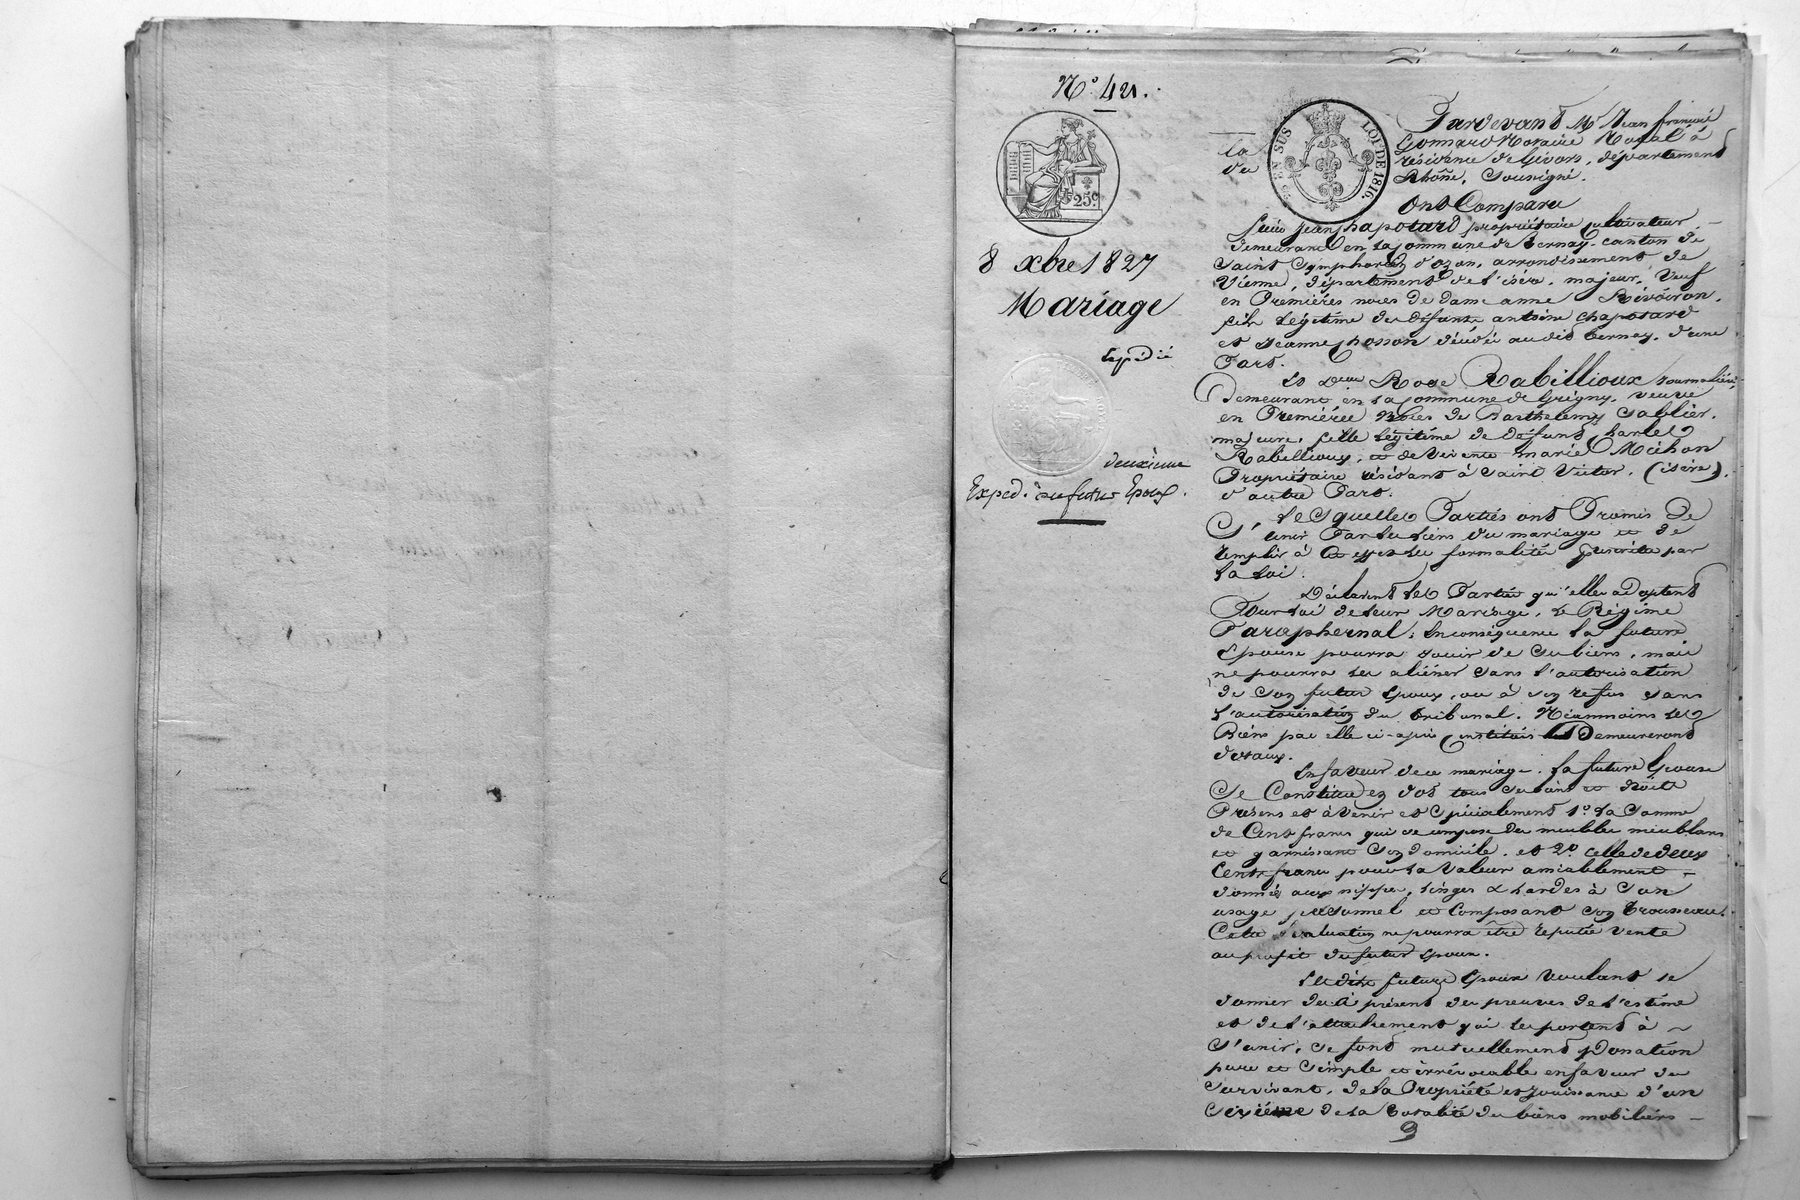 N.° 421.
25c.
8 xbre 1827
Mariage
Expédié
deuxième
Exped. au futur Epoux.
EN SUS
LOI DE 1816.
Pardevant Me Jean françois
Gonnard Notaire Royal à
la résidence de Givors, département
du Rhône, soussigné.
Ont Comparu
sieur jean Chapotard propriétaire cultivateur
demeurant en la Commune de Ternay, canton de
Saint Symphorien d'ozon, arrondissement de
Vienne, département de l'isère, majeur, Veuf
en Premières noces de dame anne Révoiron,
fils Légitime de défunts antoine Chapotard
et Jeanne Chosson décédés audit Ternay, d'une
Part.
Et Dame Rose Rabillioux journalière,
Demeurant en la Commune de Grigny, veuve
en Premières Noces de Barthelemy Sablier,
majeure, fille Légitime de défunt Charles
Rabillioux, et de vivante marie Michon
Propriétaire résidant à Saint Victor, (isère).
d'autre Part.
Lesquelles Parties ont Promis de
S'unir Par les Liens du mariage et de
remplir à cet effet les formalités prescrites par
la Loi.
Déclarent les Parties qu'elles adoptent
Pour Loi de leur Mariage, Le Régime
Paraphernal; En conséquence la future
Epouse pourra jouir de ses biens, mais
ne pourra les aliéner sans l'autorisation
de son futur Epoux, ou à son refus sans
l'autorisation du tribunal. Néanmoins les
Biens par elle ci-après Constitués Demeureront
dotaux.
En faveur de ce mariage, la future Epouse
Se Constitue en dot tous ses biens et droits
Présens et à venir et Spécialement 1.° la Somme
de Cent francs qui se compose des meubles meublans
et garnissant son domicile, et 2.° celle de deux
Cents francs pour la Valeur amiablement
donnée aux nippes, linges & hardes à Son
usage personnel et Composant son trousseau.
Cette évaluation ne pourra être réputée Vente
au profit du futur époux.
Lesdits futurs Epoux voulant se
donner dès à présent des preuves de l'estime
et de l'attachement qui les portent à
S'unir, se font mutuellement Donation
pure et Simple et irrévocable en faveur du
Survivant, de la Propriété et jouissance d'un
Sixième de la totalité des biens mobiliers